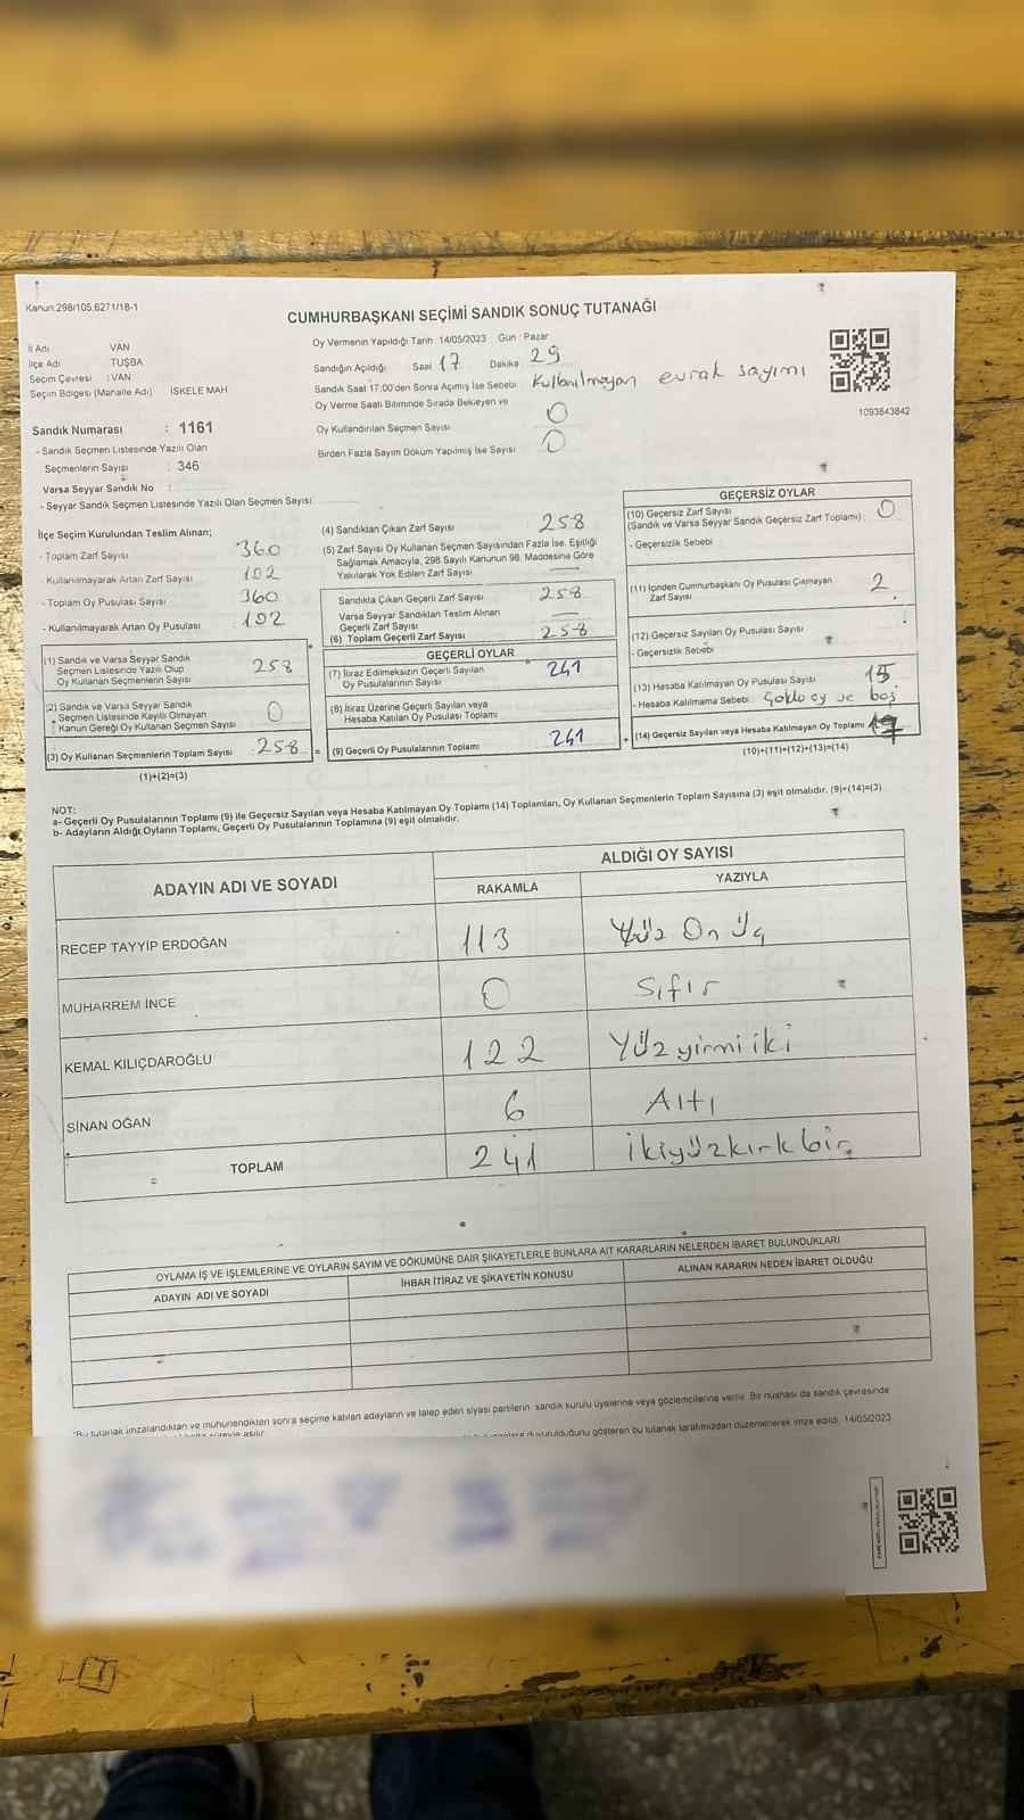 Kanun:298/105,6271/18-1
CUMHURBAŞKANI SEÇİMİ SANDIK SONUÇ TUTANAĞI
İl Adı VAN
İlçe Adı TUŞBA
Seçim Çevresi : VAN
Seçim Bölgesi (Mahalle Adı) İSKELE MAH
Oy Vermenin Yapıldığı Tarih 14/05/2023 Gün : Pazar
Sandığın Açıldığı Saat 17 Dakika 29
Sandık Saat 17:00'den Sonra Açımış İse Sebebi Kullanılmayan evrak sayımı
Oy Verme Saati Bitiminde Sırada Bekleyen ve
Oy Kullandırılan Seçmen Sayısı 0
Birden Fazla Sayım Döküm Yapılmış İse Sayısı 0
1093843842
Sandık Numarası : 1161
- Sandık Seçmen Listesinde Yazılı Olan
Seçmenlerin Sayısı : 346
Varsa Seyyar Sandık No :
- Seyyar Sandık Seçmen Listesinde Yazılı Olan Seçmen Sayısı
İlçe Seçim Kurulundan Teslim Alınan;
- Toplam Zarf Sayısı 360
- Kullanılmayarak Artan Zarf Sayısı 102
- Toplam Oy Pusulası Sayısı 360
- Kullanılmayarak Artan Oy Pusulası 102
(1) Sandık ve Varsa Seyyar Sandık
Seçmen Listesinde Yazılı Olup
Oy Kullanan Seçmenlerin Sayısı 258
(2) Sandık ve Varsa Seyyar Sandık
Seçmen Listesinde Kayıtlı Olmayan
Kanun Gereği Oy Kullanan Seçmen Sayısı 0
(3) Oy Kullanan Seçmenlerin Toplam Sayısı 258
(1)+(2)=(3)
(4) Sandıktan Çıkan Zarf Sayısı 258
(5) Zarf Sayısı Oy Kullanan Seçmen Sayısından Fazla İse, Eşitliği
Sağlamak Amacıyla, 298 Sayılı Kanunun 98. Maddesine Göre
Yakılarak Yok Edilen Zarf Sayısı —
Sandıkta Çıkan Geçerli Zarf Sayısı 258
Varsa Seyyar Sandıktan Teslim Alınan
Geçerli Zarf Sayısı —
(6) Toplam Geçerli Zarf Sayısı 258
GEÇERLİ OYLAR
(7) İtiraz Edilmeksizin Geçerli Sayılan
Oy Pusulalarının Sayısı 241
(8) İtiraz Üzerine Geçerli Sayılan veya
Hesaba Katılan Oy Pusulası Toplamı
(9) Geçerli Oy Pusulalarının Toplamı 241
GEÇERSİZ OYLAR
(10) Geçersiz Zarf Sayısı
(Sandık ve Varsa Seyyar Sandık Geçersiz Zarf Toplamı) 0
- Geçersizlik Sebebi
(11) İçinden Cumhurbaşkanı Oy Pusulası Çıkmayan
Zarf Sayısı 2
(12) Geçersiz Sayılan Oy Pusulası Sayısı
- Geçersizlik Sebebi
(13) Hesaba Katılmayan Oy Pusulası Sayısı 15
- Hesaba Katılmama Sebebi Çoklu oy ve boş
(14) Geçersiz Sayılan veya Hesaba Katılmayan Oy Toplamı 17
(10)+(11)+(12)+(13)=(14)
NOT:
a- Geçerli Oy Pusulalarının Toplamı (9) ile Geçersiz Sayılan veya Hesaba Katılmayan Oy Toplamı (14) Toplamları, Oy Kullanan Seçmenlerin Toplam Sayısına (3) eşit olmalıdır. (9)+(14)=(3)
b- Adayların Aldığı Oyların Toplamı, Geçerli Oy Pusulalarının Toplamına (9) eşit olmalıdır.
ADAYIN ADI VE SOYADI
ALDIĞI OY SAYISI
RAKAMLA YAZIYLA
RECEP TAYYİP ERDOĞAN 113 Yüz On Üç
MUHARREM İNCE 0 Sıfır
KEMAL KILIÇDAROĞLU 122 Yüz yirmi iki
SİNAN OĞAN 6 Altı
TOPLAM 241 ikiyüzkırk bir
OYLAMA İŞ VE İŞLEMLERİNE VE OYLARIN SAYIM VE DÖKÜMÜNE DAİR ŞİKAYETLERLE BUNLARA AİT KARARLARIN NELERDEN İBARET BULUNDUKLARI
ADAYIN ADI VE SOYADI İHBAR İTİRAZ VE ŞİKAYETİN KONUSU ALINAN KARARIN NEDEN İBARET OLDUĞU
*Bu tutanak imzalandıktan ve mühürlendikten sonra seçime katılan adayların ve talep eden siyasi partilerin sandık kurulu üyelerine veya gözlemcilerine verilir. Bir nüshası da sandık çevresinde
duyurulduğunu gösteren bu tutanak tarafımızdan düzenlenerek imza edildi. 14/05/2023